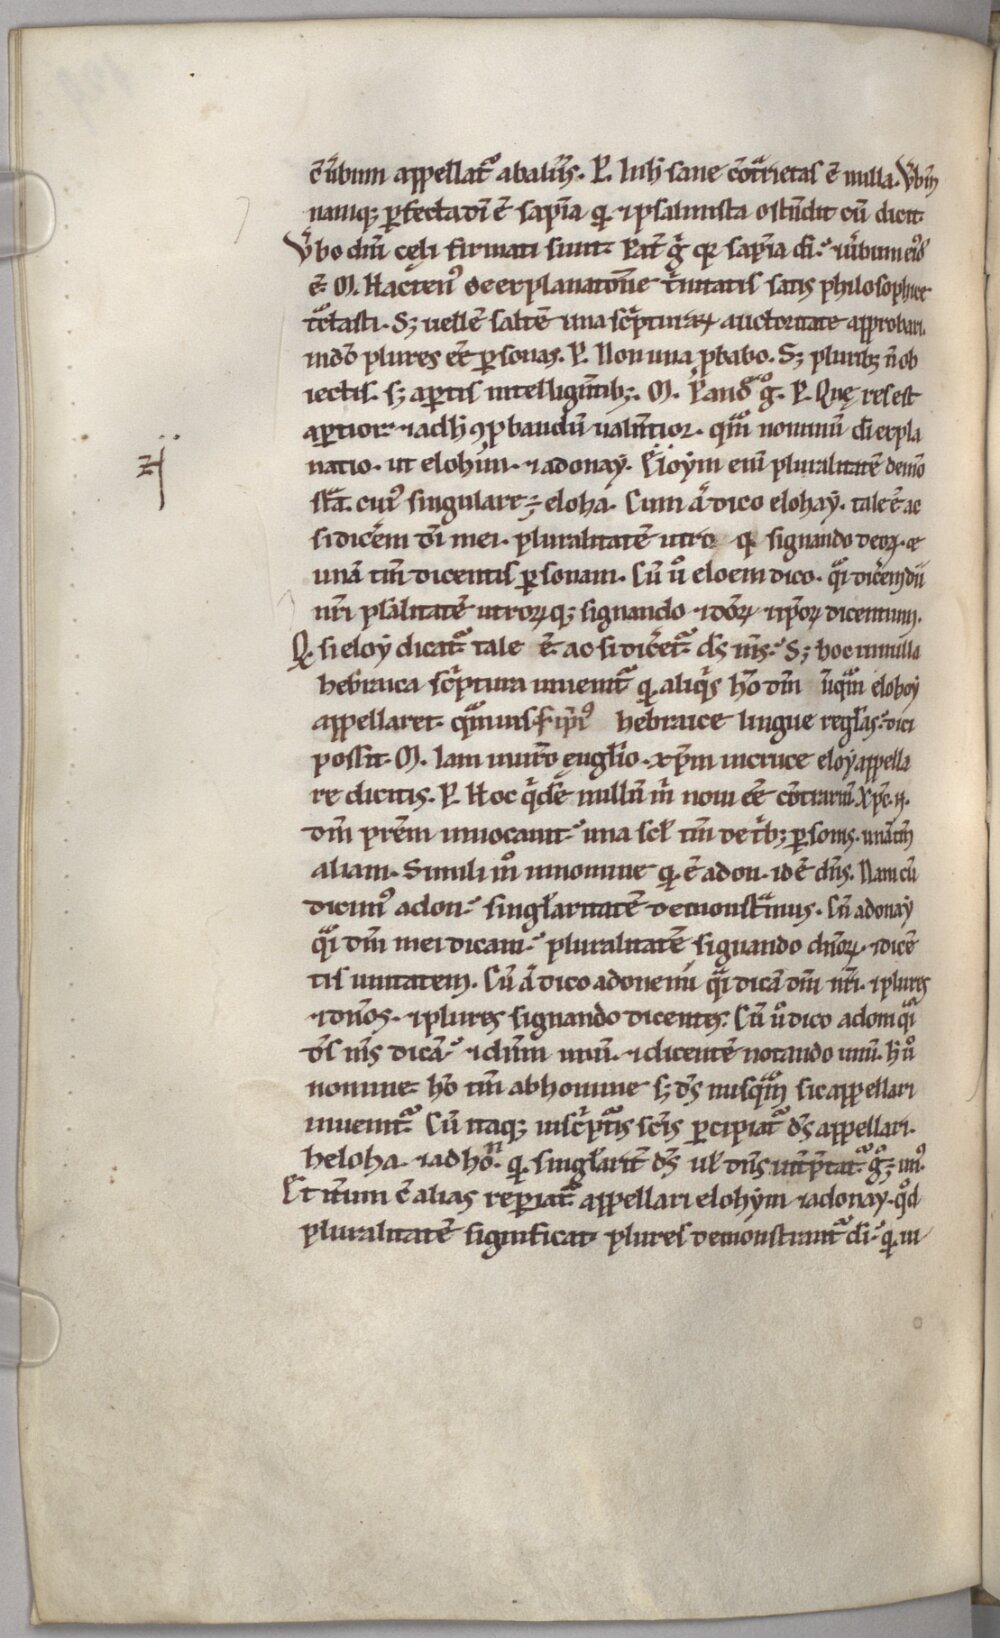 ē ūbum appellat᷑ ab aliis. P. In h̄ sane ꝯt͛rietas ē nulla. V̄bū
namq; ꝑfecta dī ē sapīa qđ ⁊ psalmista ostēdit cū dicit.
V̄bo dn̄i cęli firmati sunt. Pat͛ g͛ qꝛ sapīa dī. ⁊ ūbum ei᷒
ē. M. Hacten᷒ de explanatōne t͛nitatis satis philosophice
S; uellē saltē una sc͛pturaꝝ auctoritate approbari.
m° plures eē ꝑsonas. P. Non una ꝓbabo. S; plurib; n̄ ob
iectis. s; aꝑtis intelligentib;. M. Pande g°. P. Quę res est
aꝑtior. ⁊ ad h̄ ꝯꝓbandū ualentior. qm̄ nominū dī expla
natio. ut elohim. ⁊ adonaẏ. Eloẏm enī pluralitatē demō
strat. cui᷒ singulare ē eloha. Cum aū dico elohaẏ. tale ē ac
si dicerem dī mei. pluralitatē utro qꝫ signando deoꝝ. &
unā tm̄ dicentis ꝑsonam. Cū u° eloem dico. qͣi dicerem dī
nr̄i pluralitatē utroꝝq; signando ⁊ deoꝝ ⁊ ip̄oꝝ dicentium.
Qđ si eloẏ dicat᷑ tale ē ac si diceret᷑ ds̄ ms̄. S; hoc in nulla
hebraica sc͛ptura inuenit᷑ qđ aliq͛s hō dm̄ nūqͣm elohoẏ
appellaret. qͣmuis hebraice lingue regłas. dici
possit. M. Iam in ur̄o euuglio. xp̄m in cruce eloẏ appella
re dicitis. P. Hoc q͛dē nullū m͛ noui eē ꝯtrariū. Xp̄c. n.
dm̄ pr̄em inuocauit. una scł tm̄ de t͛b; ꝑsonis. unā tm̄
aliam. Simili m° in nomine qđ ē adon. id ē dn̄s. Nam cū
dicim᷒ adon. singłaritatē demonstͣmus. Cū adonaẏ
qͣi dm̄ mei dicam. pluralitatē signando dn̄oꝝ. ⁊ dicē
tis unitatem. Cū aū dico adonenu qͣi dicā dm̄ nr̄i. ⁊ plures
⁊ dn̄os. ⁊ plures signando dicentes. Cū u° dico adoni qͣi
dn̄s ms̄ dicā. ⁊ dn̄m unū. ⁊ dicentē notando unū. h̄ u°
nomine hō tm̄ ab homine s; ds̄ nusqͣm sic appellari
inuenit᷑. Cū itaq; in sc͛ptͣis sc̄is ꝑcipiat᷑ ds̄ appellari.
heloha. ⁊ adhon. qđ singłarit͛ ds̄ uł dn̄s int͛p̄tat᷑. g° ē un᷒.
Et it͛um ē alias reꝑiat᷑ appellari elohẏm ⁊ adonaẏ. qđ
pluralitatē significat plures demonstrant᷑ dī. qđ in